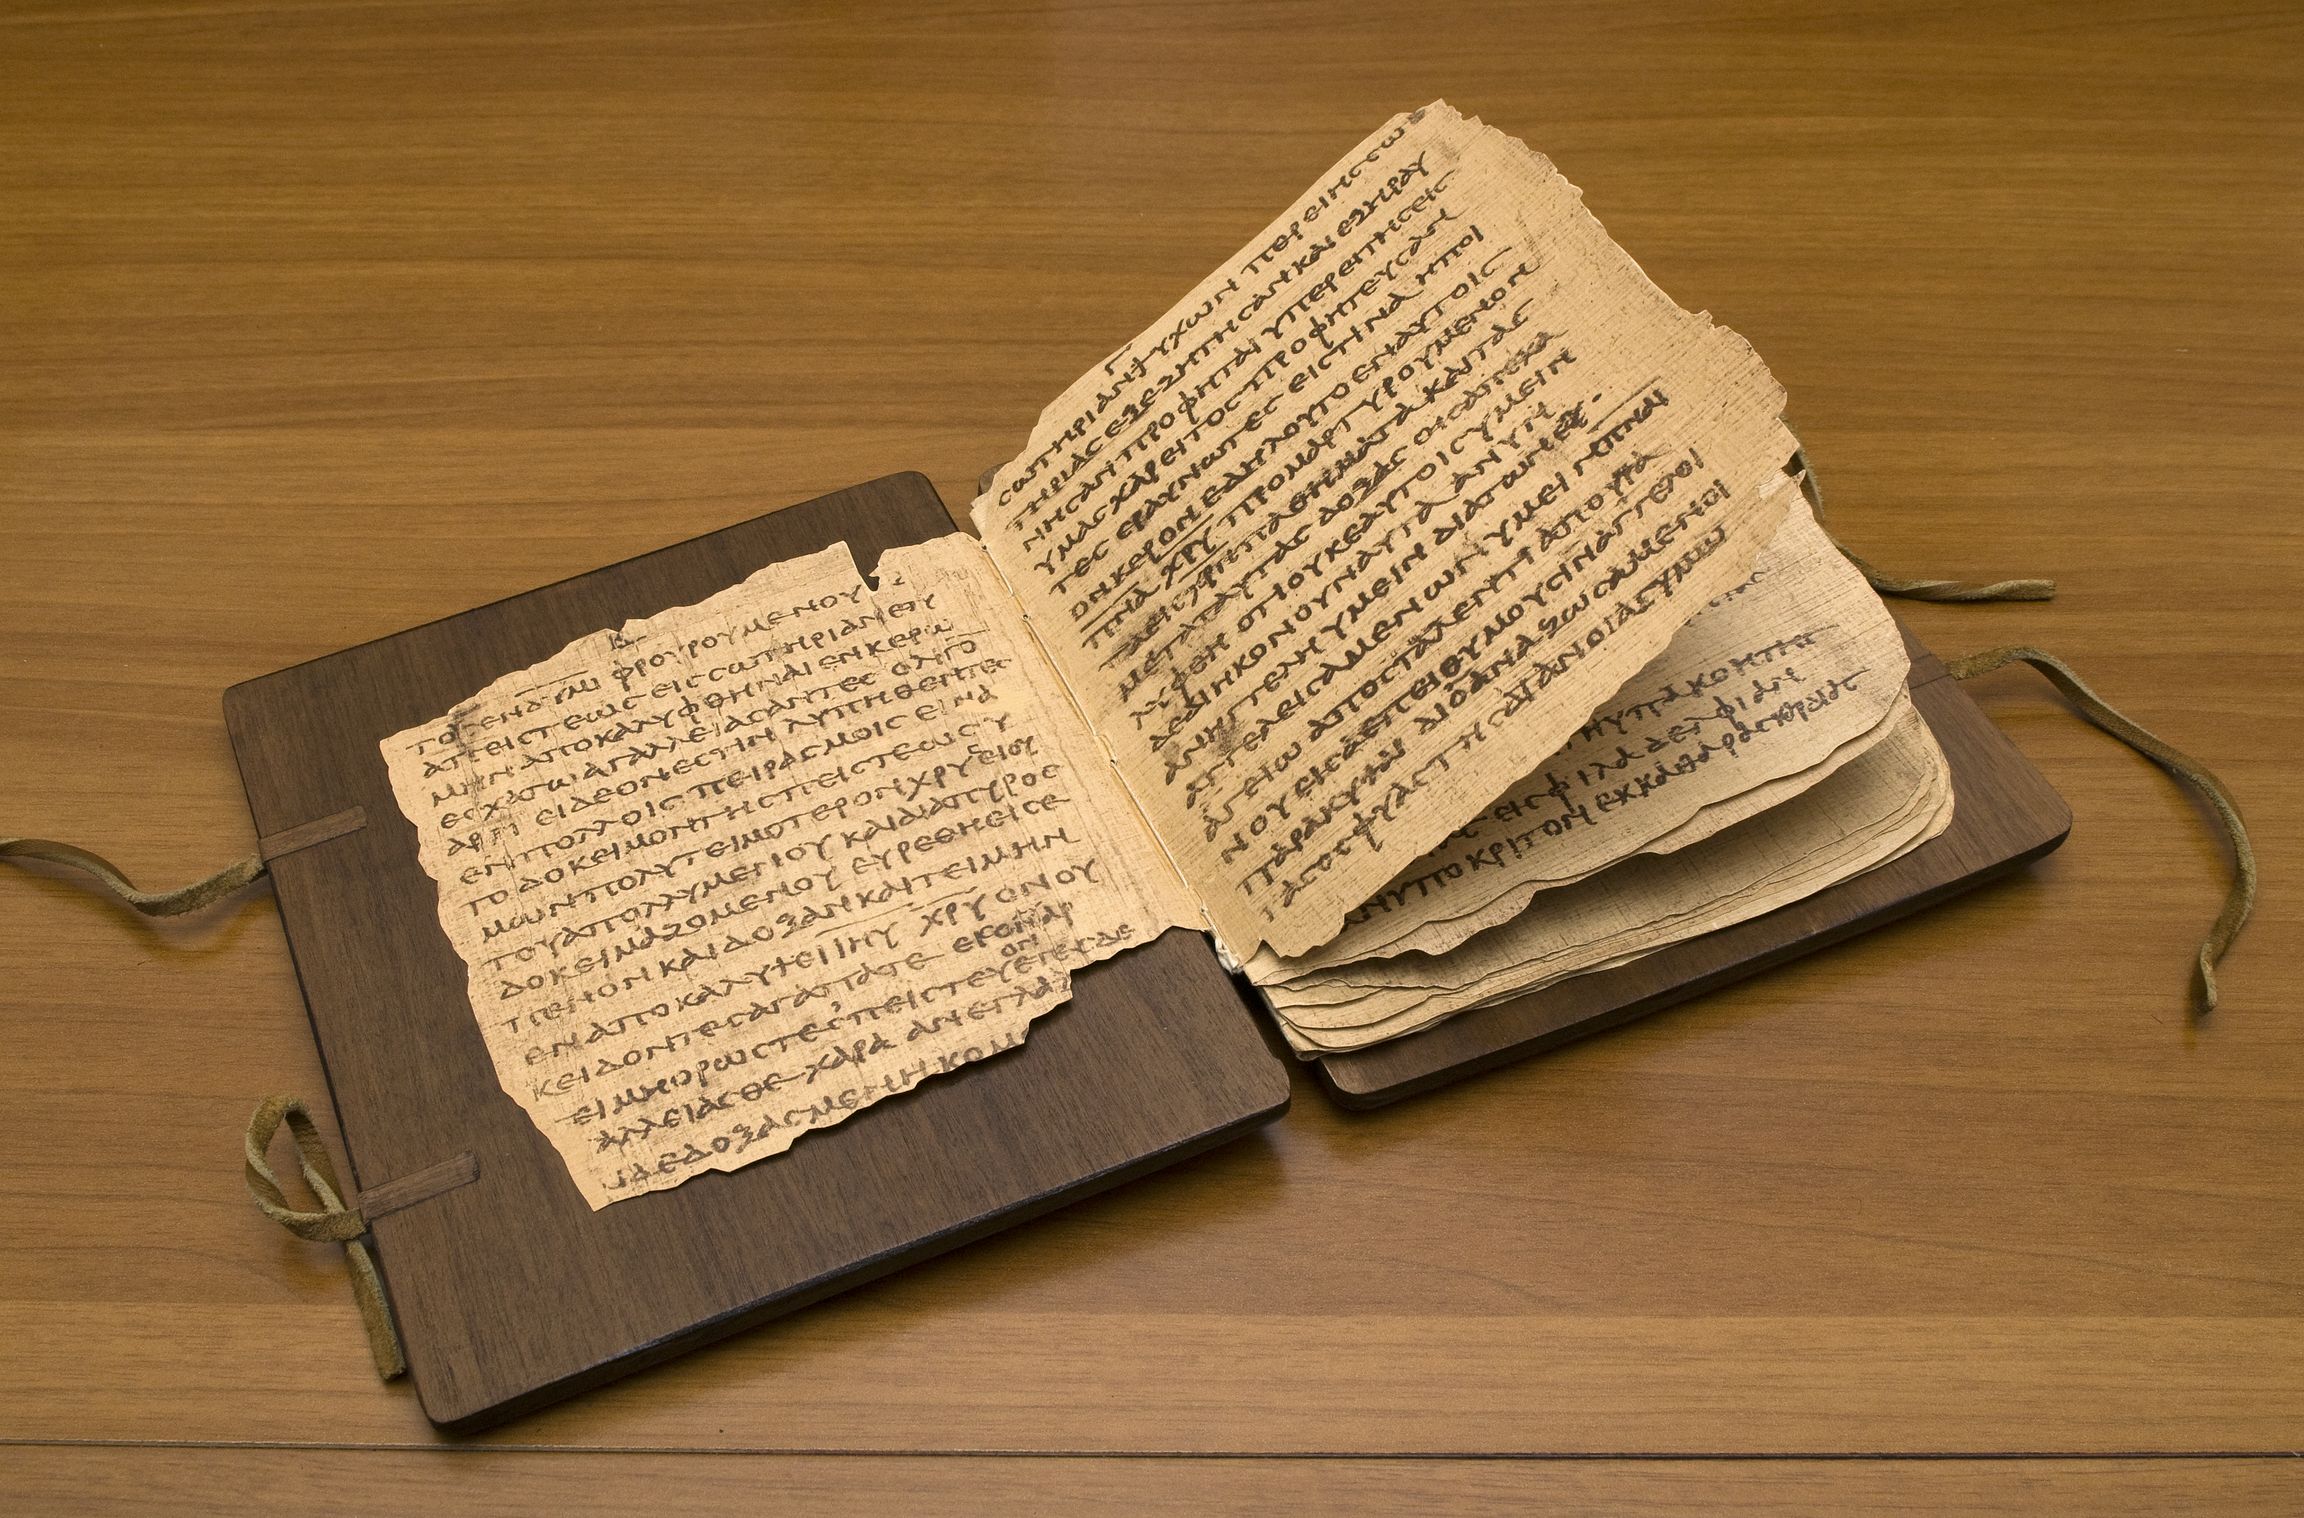 ΦΡΟΥΡΟΥΜΕΝΟΥ
ΠΕΙϹΤΕΩϹ ΕΙϹ ϹΩΤΗΡΙΑΝ ΕΤΥ
ΜΗΝ ΑΠΟΚΑΛΥΦΘΗΝΑΙ ΕΝ ΚΕΡΩ
ΕϹΧΑΤΩ ΑΓΑΛΛΕΙΑϹΑΝΤΕϹ ΟΛΙΓΟ
ΑΡΤΙ ΕΙ ΔΕΟΝ ΕϹΤΙΝ ΛΥΠΗΘΕΝΤΕϹ
ΕΝ ΠΟΛΛΟΙϹ ΠΕΙΡΑϹΜΟΙϹ ΕΙΝΑ
ΤΟ ΔΟΚΕΙΜΟΝ ΤΗϹ ΠΕΙϹΤΕΩϹ Υ
ΜΩΝ ΠΟΛΥΤΕΙΜΟΤΕΡΟΝ ΧΡΥϹΕΙΟΥ
ΤΟΥ ΑΠΟΛΛΥΜΕΝΟΥ ΚΑΙ ΔΙΑ ΠΥΡΟϹ
ΔΟΚΕΙΜΑΖΟΜΕΝΟΥ ΕΥΡΕΘΗ ΕΙϹ Ε
ΠΕΝΟΝ ΚΑΙ ΔΟΞΑΝ ΚΑΙ ΤΕΙΜΗΝ
ΕΝ ΑΠΟΚΑΛΥΨΕΙ ΙΗΥ ΧΡΥ ΟΝ ΟΥ
Κ ΕΙΔΟΝΤΕϹ ΑΓΑΠΑΤΕ
ΠΕΙϹΤΕΥΟΝΤΕϹ ΔΕ
ΑΛΛΕΙΑϹΘΕ ΧΑΡΑ ΑΝΕΓΛΑΛ
ΔΕΔΟΞΑϹΜΕΝΗ ΚΟΜ
ϹΩΤΗΡΙΑΝ ΨΥΧΩΝ ΠΕΡΕΙ ΗϹ ϹΩ
ΤΗΡΙΑϹ ΕΞΕΖΗΤΗϹΑΝ ΚΑΙ ΕΞΗΡΑΥ
ΝΗϹΑΝ ΠΡΟΦΗΤΑΙ ΥΠΕΡ ΕΠΗϹ ΕΙϹ
ΥΜΑϹ ΧΑΡΕΙΤΟϹ ΠΡΟΦΗΤΕΥϹΑΝ
ΤΕϹ ΕΡΑΥΝΩΤΕϹ ΕΙϹ ΤΙΝΑ Η ΠΟΙ
ΟΝ ΚΕΡΟΝ ΕΔΗΛΟΥΤΟ ΕΝ ΑΥΤΟΙϹ
ΠΝΑ ΧΡΥ ΠΡΟΜΑΡΤΥΡΟΥΜΕΝΟΝ
ΠΑΘΗΜΑΤΑ ΚΑΙ ΤΑϹ
ΜΕΤΑ ΤΑΥΤΑϹ ΔΟΞΑϹ ΟΙϹ ΑΠΕΚΑ
ΛΥΦΘΗ ΟΤΙ ΟΥΚ ΕΑΥΤΟΙϹ ΥΜΕΙΝ
ΔΕ ΔΙΗΚΟΝΟΥΝ ΑΥΤΑ Α ΝΥΝ
ΑΝΗΓΓΕΛΗ ΥΜΕΙΝ ΔΙΑ ΤΩΝ ΕΥ
ΑΓΓΕΛΕΙϹΑΜΕΝΩΝ ΥΜΕΙΝ ΠΝΙ
ΑΓΕΙΩ ΑΠΟϹΤΑΛΕΝΤΙ ΑΠ ΟΥΡΑ
ΝΟΥ ΕΙϹ Α ΕΠΕΙΘΥΜΟΥϹΙΝ ΑΓΓΕΛΟΙ
ΠΑΡΑΚΥΨΑΙ ΔΙΟ ΑΝΑΖΩϹΑΜΕΝΟΙ
ΤΑϹ ΟϹΦΥΑϹ ΤΗϹ ΔΙΑΝΟΙΑϹ ΥΜΩ
ΥΠΑΚΟΗ ΤΗϹ
ΕΙϹ ΦΙΛΑΔΕΛΦΙΑΝ
ΑΝΥΠΟΚΡΙΤΟΝ ΕΚ ΚΑΘΑΡΑϹ ΚΑΡΔΙΑϹ